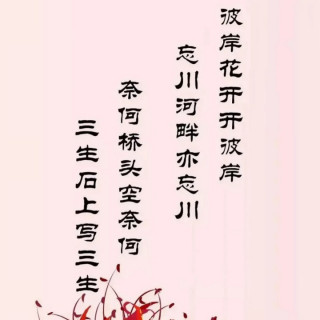 彼岸花开开彼岸
忘川河畔亦忘川
奈何桥头空奈何
三生石上写三生